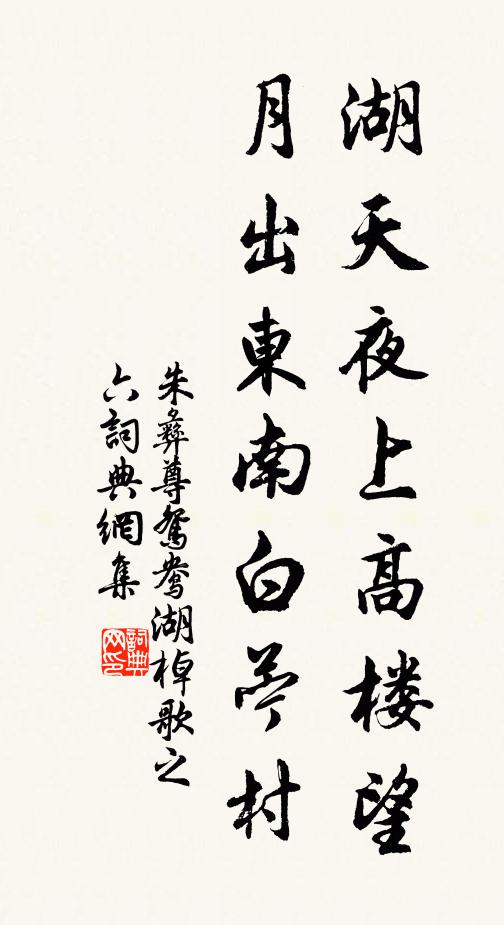 湖天夜上高楼望
月出東南白苧村
朱彝尊鴛鴦湖棹歌之
六詞典網集
詞典
网印